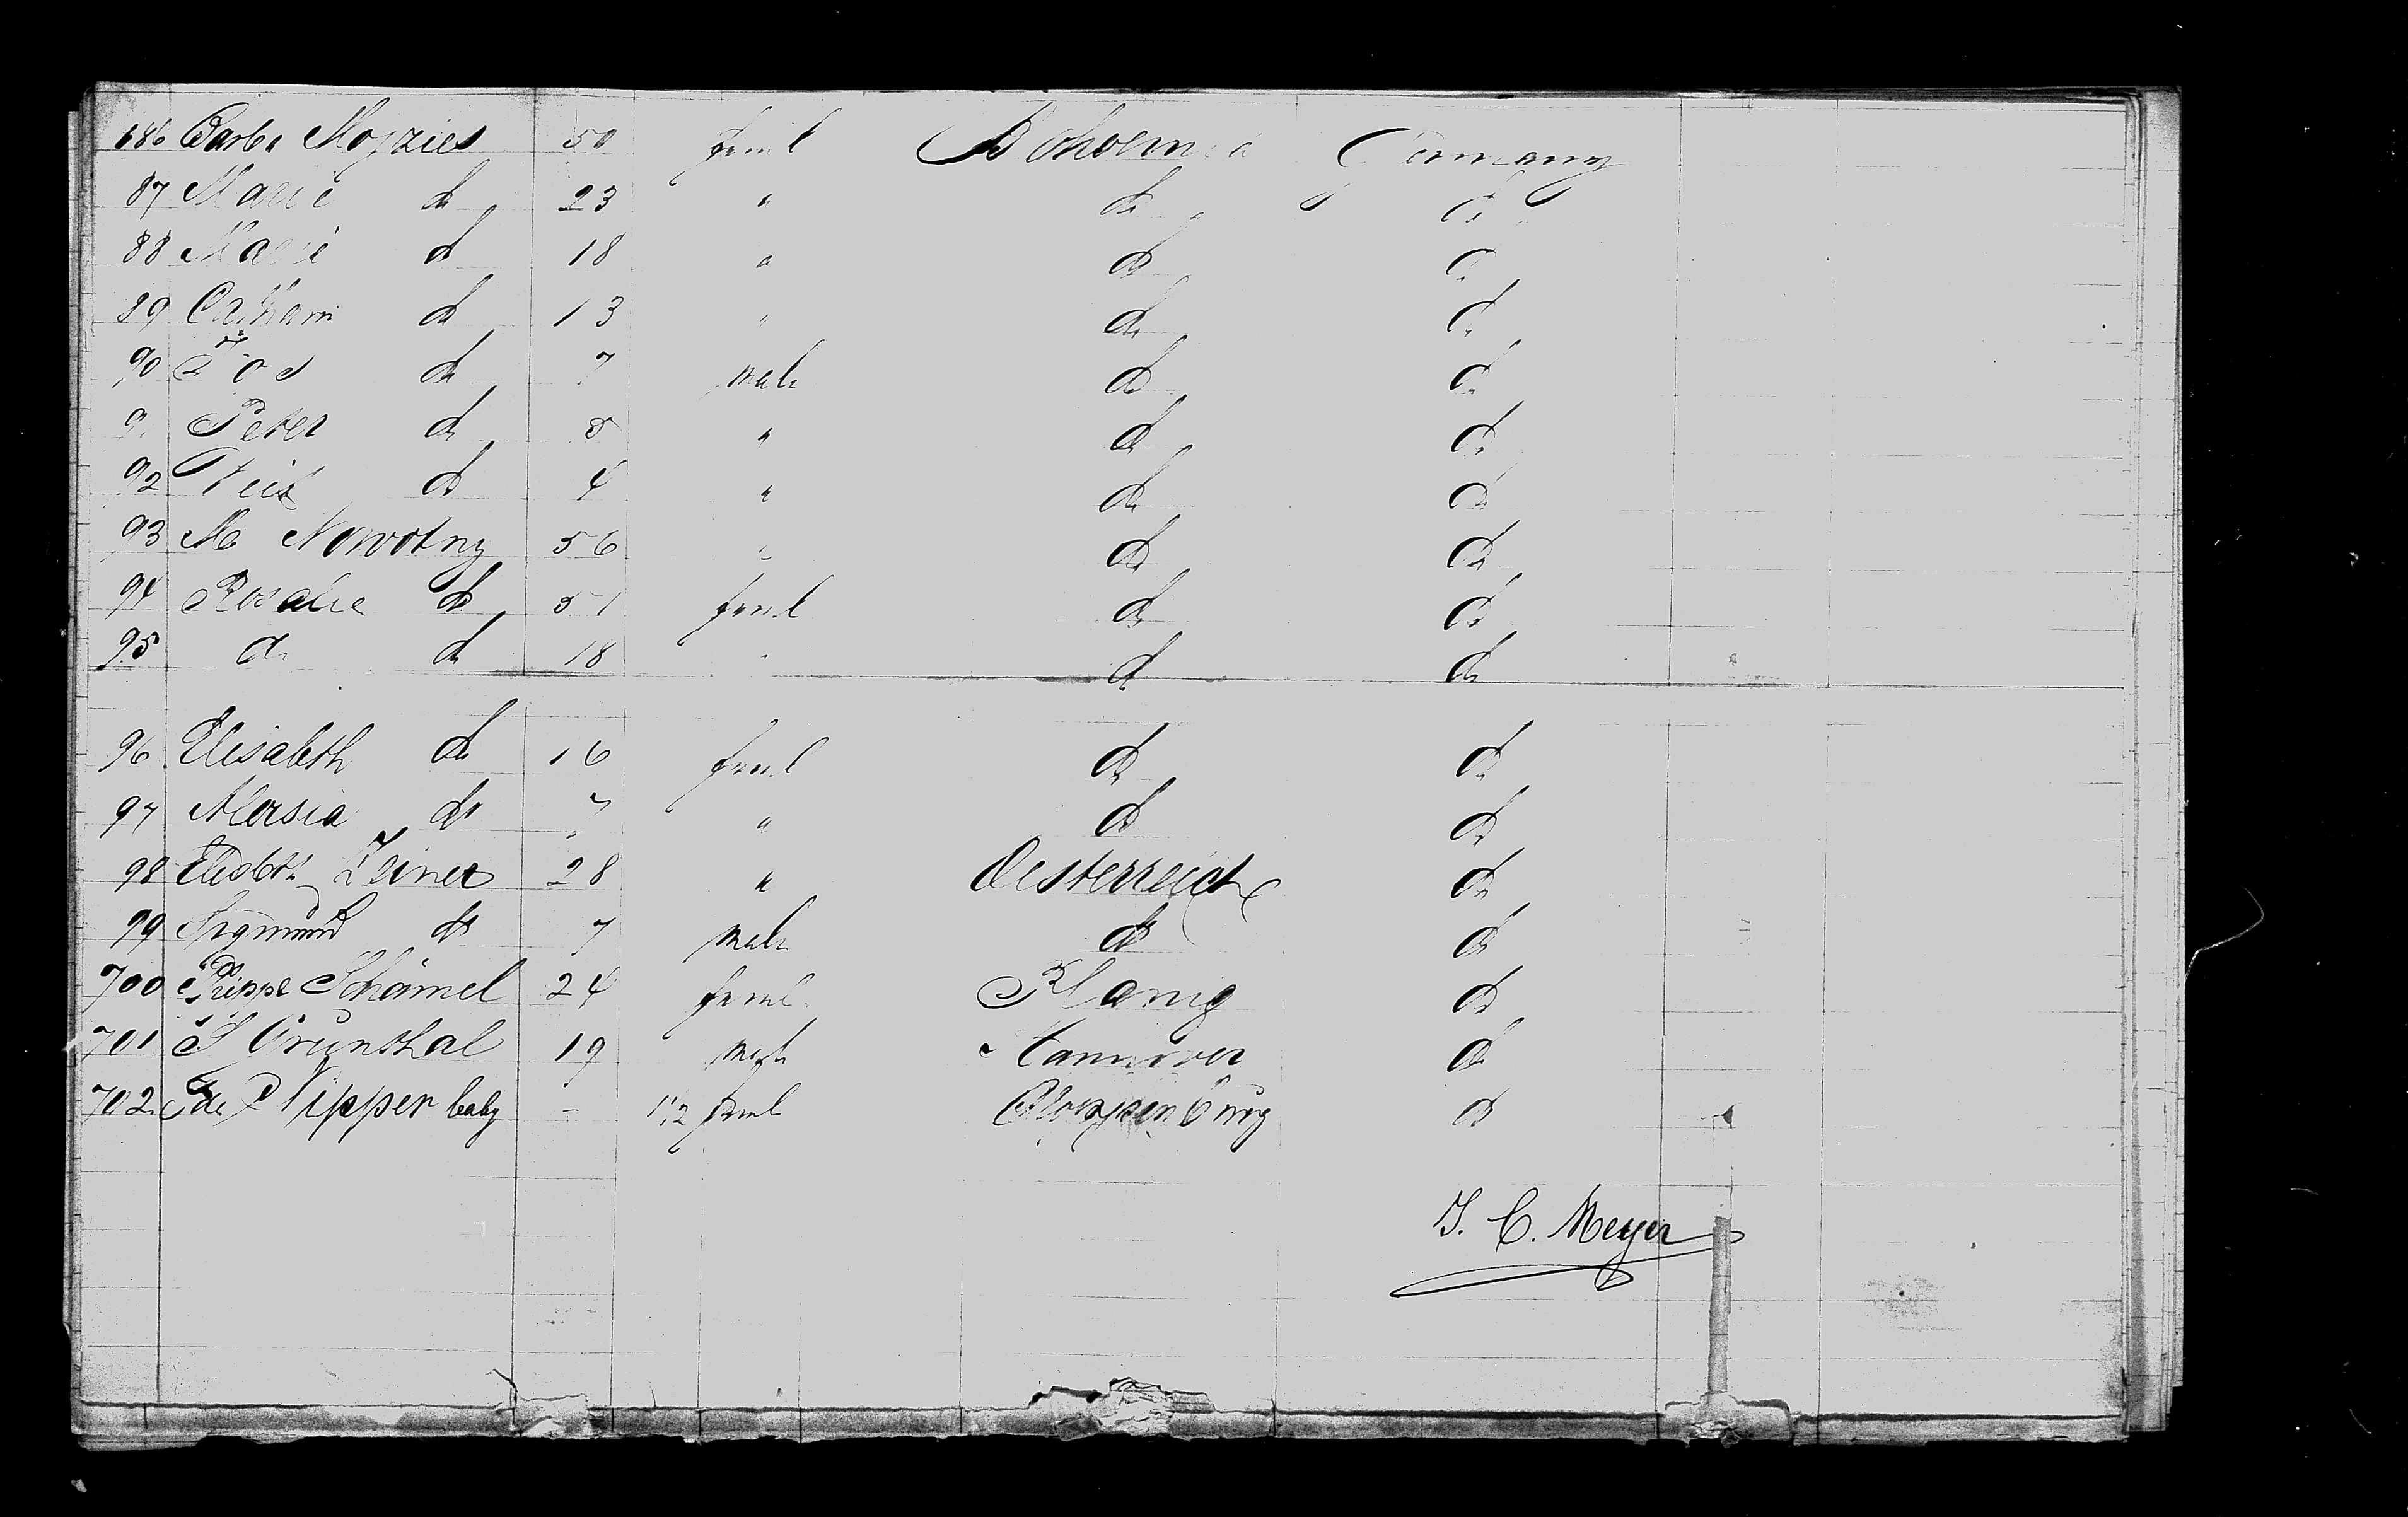 686 Barba Moyzies 50 feml Bohoemia Germany
87 Marie do 23 " do do
88 Marie do 18 " do do
89 Catham do 13 " do do
90 Jos do 7 male do do
9 Peter do 5 " do do
92 Veit do 4 " do do
93 M Nowotny 56 " do do
94 Rosalie do 51 feml do do
95 do do 18 " do do
96 Elisabeth do 16 feml do do
97 Aloisia do 7 " do do
98 Elisbth Zeiner 28 " Oesterreich do
99 Sigmund do 7 male do do
700 Schömel 24 feml do
701 S Grünthal 19 male Hannover do
702 Nipper baby - 1/2 feml Cloppenburg do
J. C. Meyer